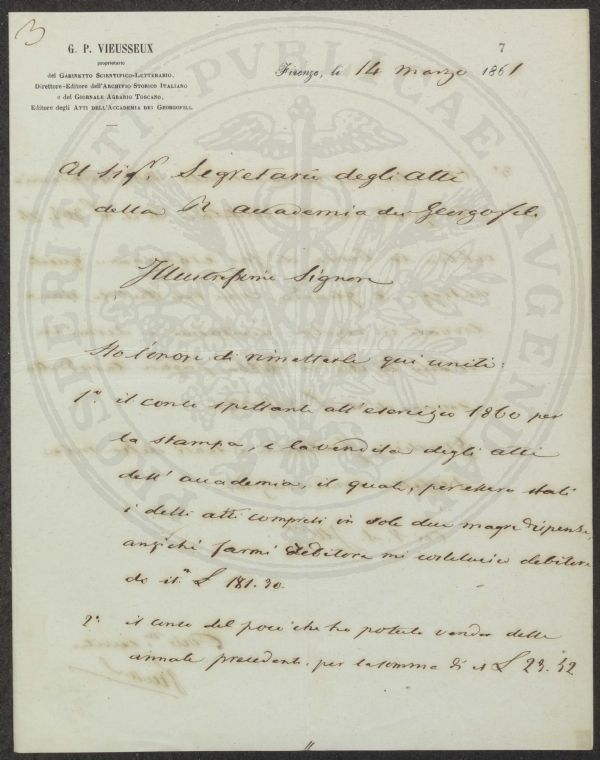 3
G. P. VIEUSSEUX
proprietario
del GABINETTO SCIENTIFICO-LETTERARIO,
Direttore-Editore dell'ARCHIVIO STORICO ITALIANO
e del GIORNALE AGRARIO TOSCANO,
Editore degli ATTI DELL'ACCADEMIA DEI GEORGOFILI.
7
Firenze, li 14 marzo 1861
Al Sigr. Segretario degli Atti
della R. Accademia dei Georgofili
Illustrissimo Signore
Ho l'onore di rimetterle qui uniti:
1° il conto spettante all'esercizio 1860 per
la stampa, e la vendita degli atti
dell'accademia, il quale, per essere stati
i detti atti compresi in sole due magre dispense,
anzichè farmi debitore mi costituisce
di it. £ 181.30.
2° il conto del poco che ho potuto vender delle
annate precedenti per la somma di it £ 23.52
PROSPERITATI PVBLICAE AVGENDAE